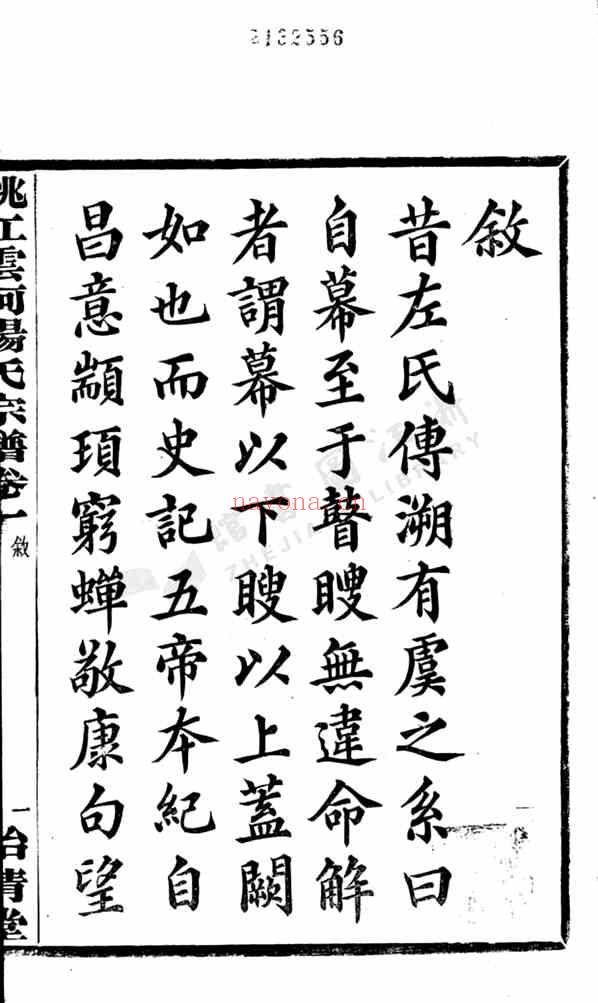 2132556
敘
昔左氏傳溯有虞之系曰
自幕至于瞽瞍無違命解
者謂幕以下瞍以上蓋闕
如也而史記五帝本紀自
昌意顓頊窮蟬敬康句望
姚江雲柯楊氏宗譜卷一
敘
一
浙江圖書館
ZHEJIANG LIBRARY
nayona.cn